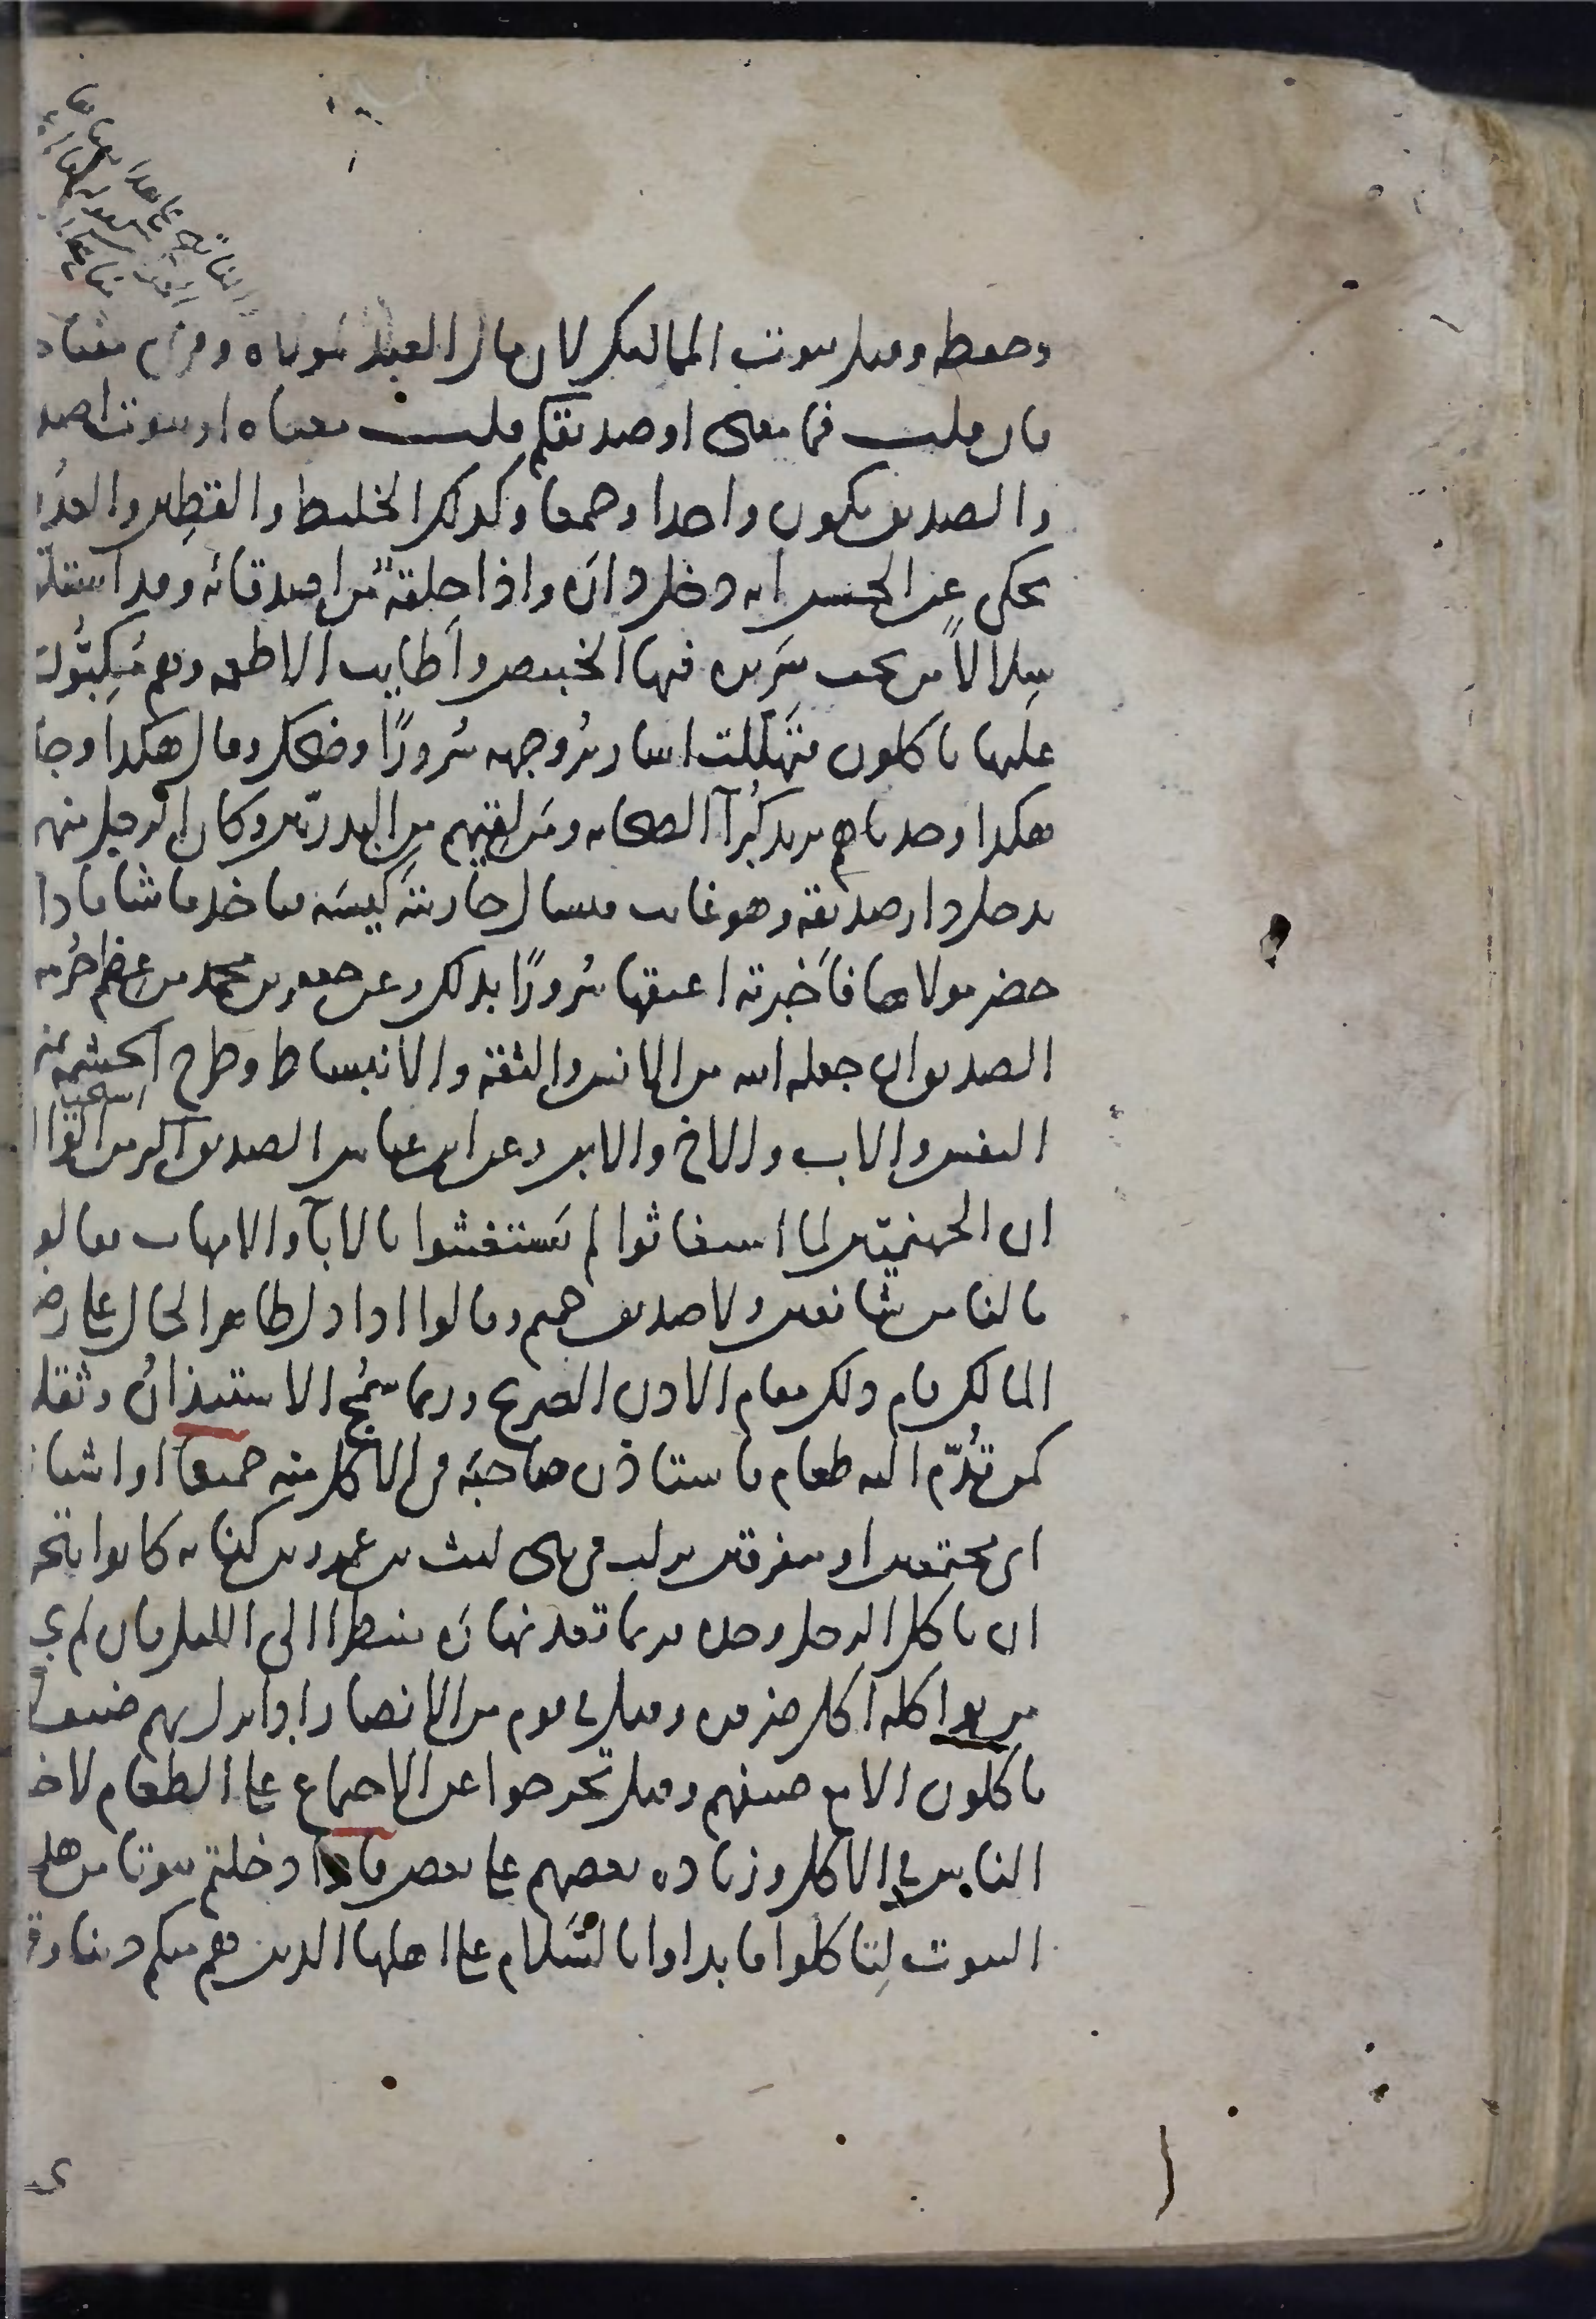 وحفظه وقيل بيوت المماليك لان مال العبد لمولاه وقرئ مفتاحه
فان قلت فما معنى او صديقكم قلت معناه او بيوت اصد
والصديق يكون واحدا وجمعا وكذلك الخليط والقطين والعدو
يحكى عن الحسن انه دخل داره واذا حلقة من اصدقائه وقد استلوا
سلالا من تحت سريره فيها الخبيص واطايب الاطعمة وهم مكبّون
عليها ياكلون فتهللت اسارير وجهه سرورًا وضحك وقال هكذا وجد
هكذا وجدناهم يريد كبرآ الصحابه ومن لقيهم من البدريّين وكان الرجل منهم
يدخل دار صديقه وهو غائب فيسال جاريته كيسه فياخذ ما شا فاذا
حضر مولاها فاخبرته اعتقها سرورًا بذلك وعن جعفر بن محمد من عظم حرمة
الصديق ان جعله الله من الانس والثقة والانبساط وطرح الحشمة بمنزلة
النفس والاب والاخ والابن وعن ابن عباس الصديق اكبر من الوا
ان الجهنميّين لما استغاثوا لم يستغيثوا بالابآ والامهات فقالو
ما لنا من شافعين ولا صديق حميم وقالوا اذا دل ظاهر الحال على رضى
المالك قام ذلك مقام الاذن الصريح وربما سمج الاستيذان وثقل
كمن قدّم اليه طعام فاستاذن صاحبه في الاكل منه جميعا او اشتا
اى مجتمعين او متفرقين نزلت في بنى ليث بن عمرو من كنانه كانوا يتحر
ان ياكل الرجل وحده فربما قعد نهاره منتظرا الى الليل فان لم يجد
من يواكله اكل ضرورة وقيل في قوم من الانصار اذا نزل بهم ضيف لا
ياكلون الا مع ضيفهم وقيل تحرجوا عن الاجتماع على الطعام لاخ
الناس في الاكل وزيادة بعضهم على بعض فاذا دخلتم بيوتا من هذه
البيوت لتاكلوا فابدأوا بالسلام على اهلها الذين هم منكم دينا وق